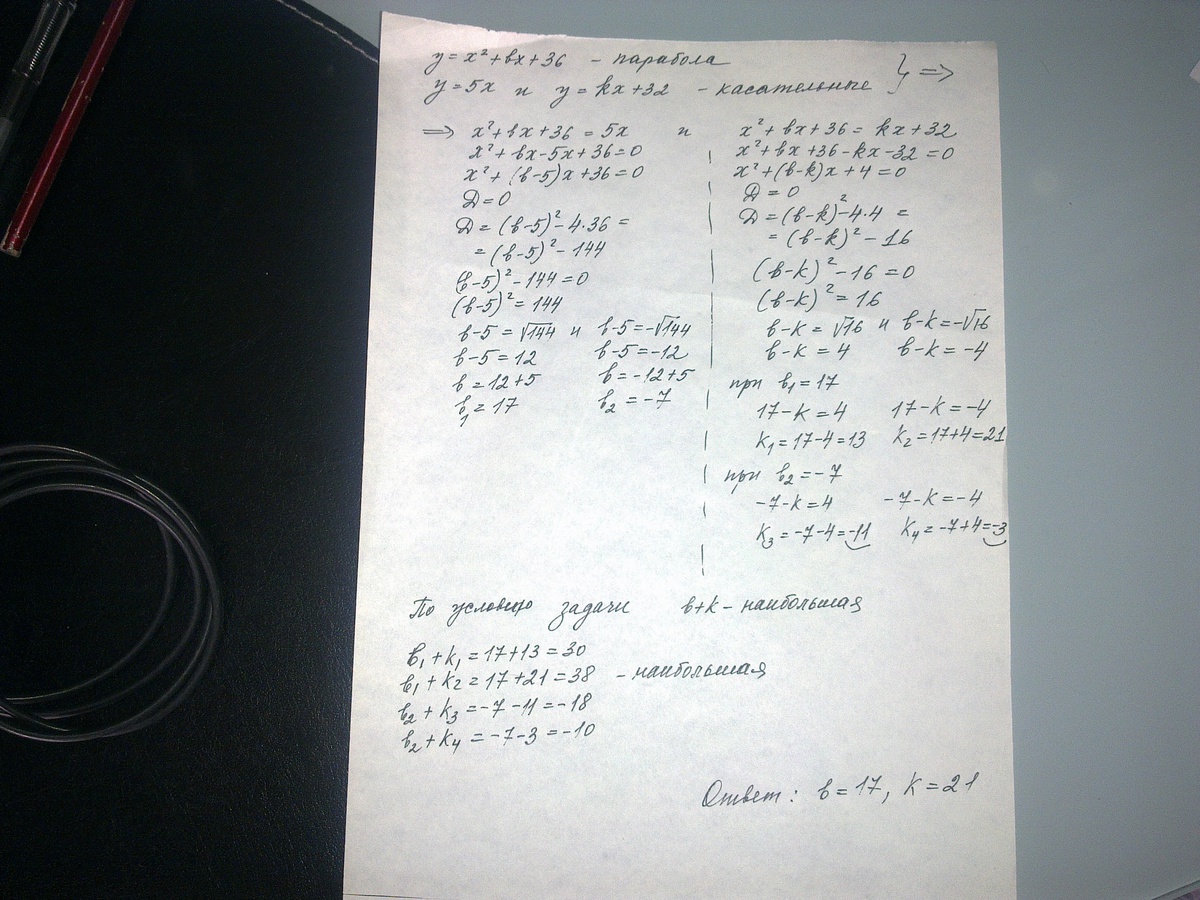 y = x² + bx + 36 - парабола
y = 5x и y = kx + 32 - касательные } =>
=> x² + bx + 36 = 5x и
x² + bx - 5x + 36 = 0
x² + (b-5)x + 36 = 0
D = 0
D = (b-5)² - 4·36 =
= (b-5)² - 144
(b-5)² - 144 = 0
(b-5)² = 144
b-5 = √144 и b-5 = -√144
b-5 = 12 b-5 = -12
b = 12+5 b = -12+5
b₁ = 17 b₂ = -7
x² + bx + 36 = kx + 32
x² + bx + 36 - kx - 32 = 0
x² + (b-k)x + 4 = 0
D = 0
D = (b-k)² - 4·4 =
= (b-k)² - 16
(b-k)² - 16 = 0
(b-k)² = 16
b-k = √16 и b-k = -√16
b-k = 4 b-k = -4
при b₁ = 17
17-k = 4 17-k = -4
k₁ = 17-4 = 13 k₂ = 17+4 = 21
при b₂ = -7
-7-k = 4 -7-k = -4
k₃ = -7-4 = -11 k₄ = -7+4 = -3
По условию задачи b+k - наибольшая
b₁ + k₁ = 17+13 = 30
b₁ + k₂ = 17+21 = 38 - наибольшая
b₂ + k₃ = -7-11 = -18
b₂ + k₄ = -7-3 = -10
Ответ: b = 17, k = 21